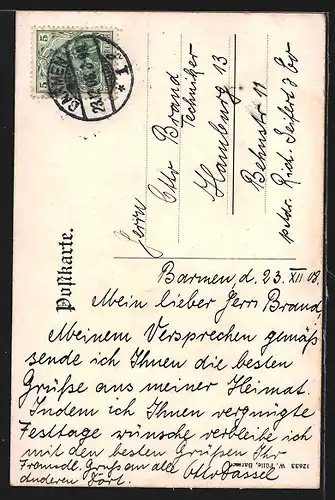 Postkarte.
BARMEN
Herrn
Otto Brand
Techniker
Hamburg 13
Behnstr 11
p. Adr. Rich. Seifert & Co
Barmen, d. 23. XII 08.
Mein lieber Herr Brand,
Meinem Versprechen gemäß
sende ich Ihnen die besten
Grüße aus meiner Heimat.
Indem ich Ihnen vergnügte
Festtage wünsche verbleibe ich
mit den besten Grüßen Ihr
Freundl. Gruß an alle Otto Tassel
anderen dort.
12633 W. Fülle, Barmen